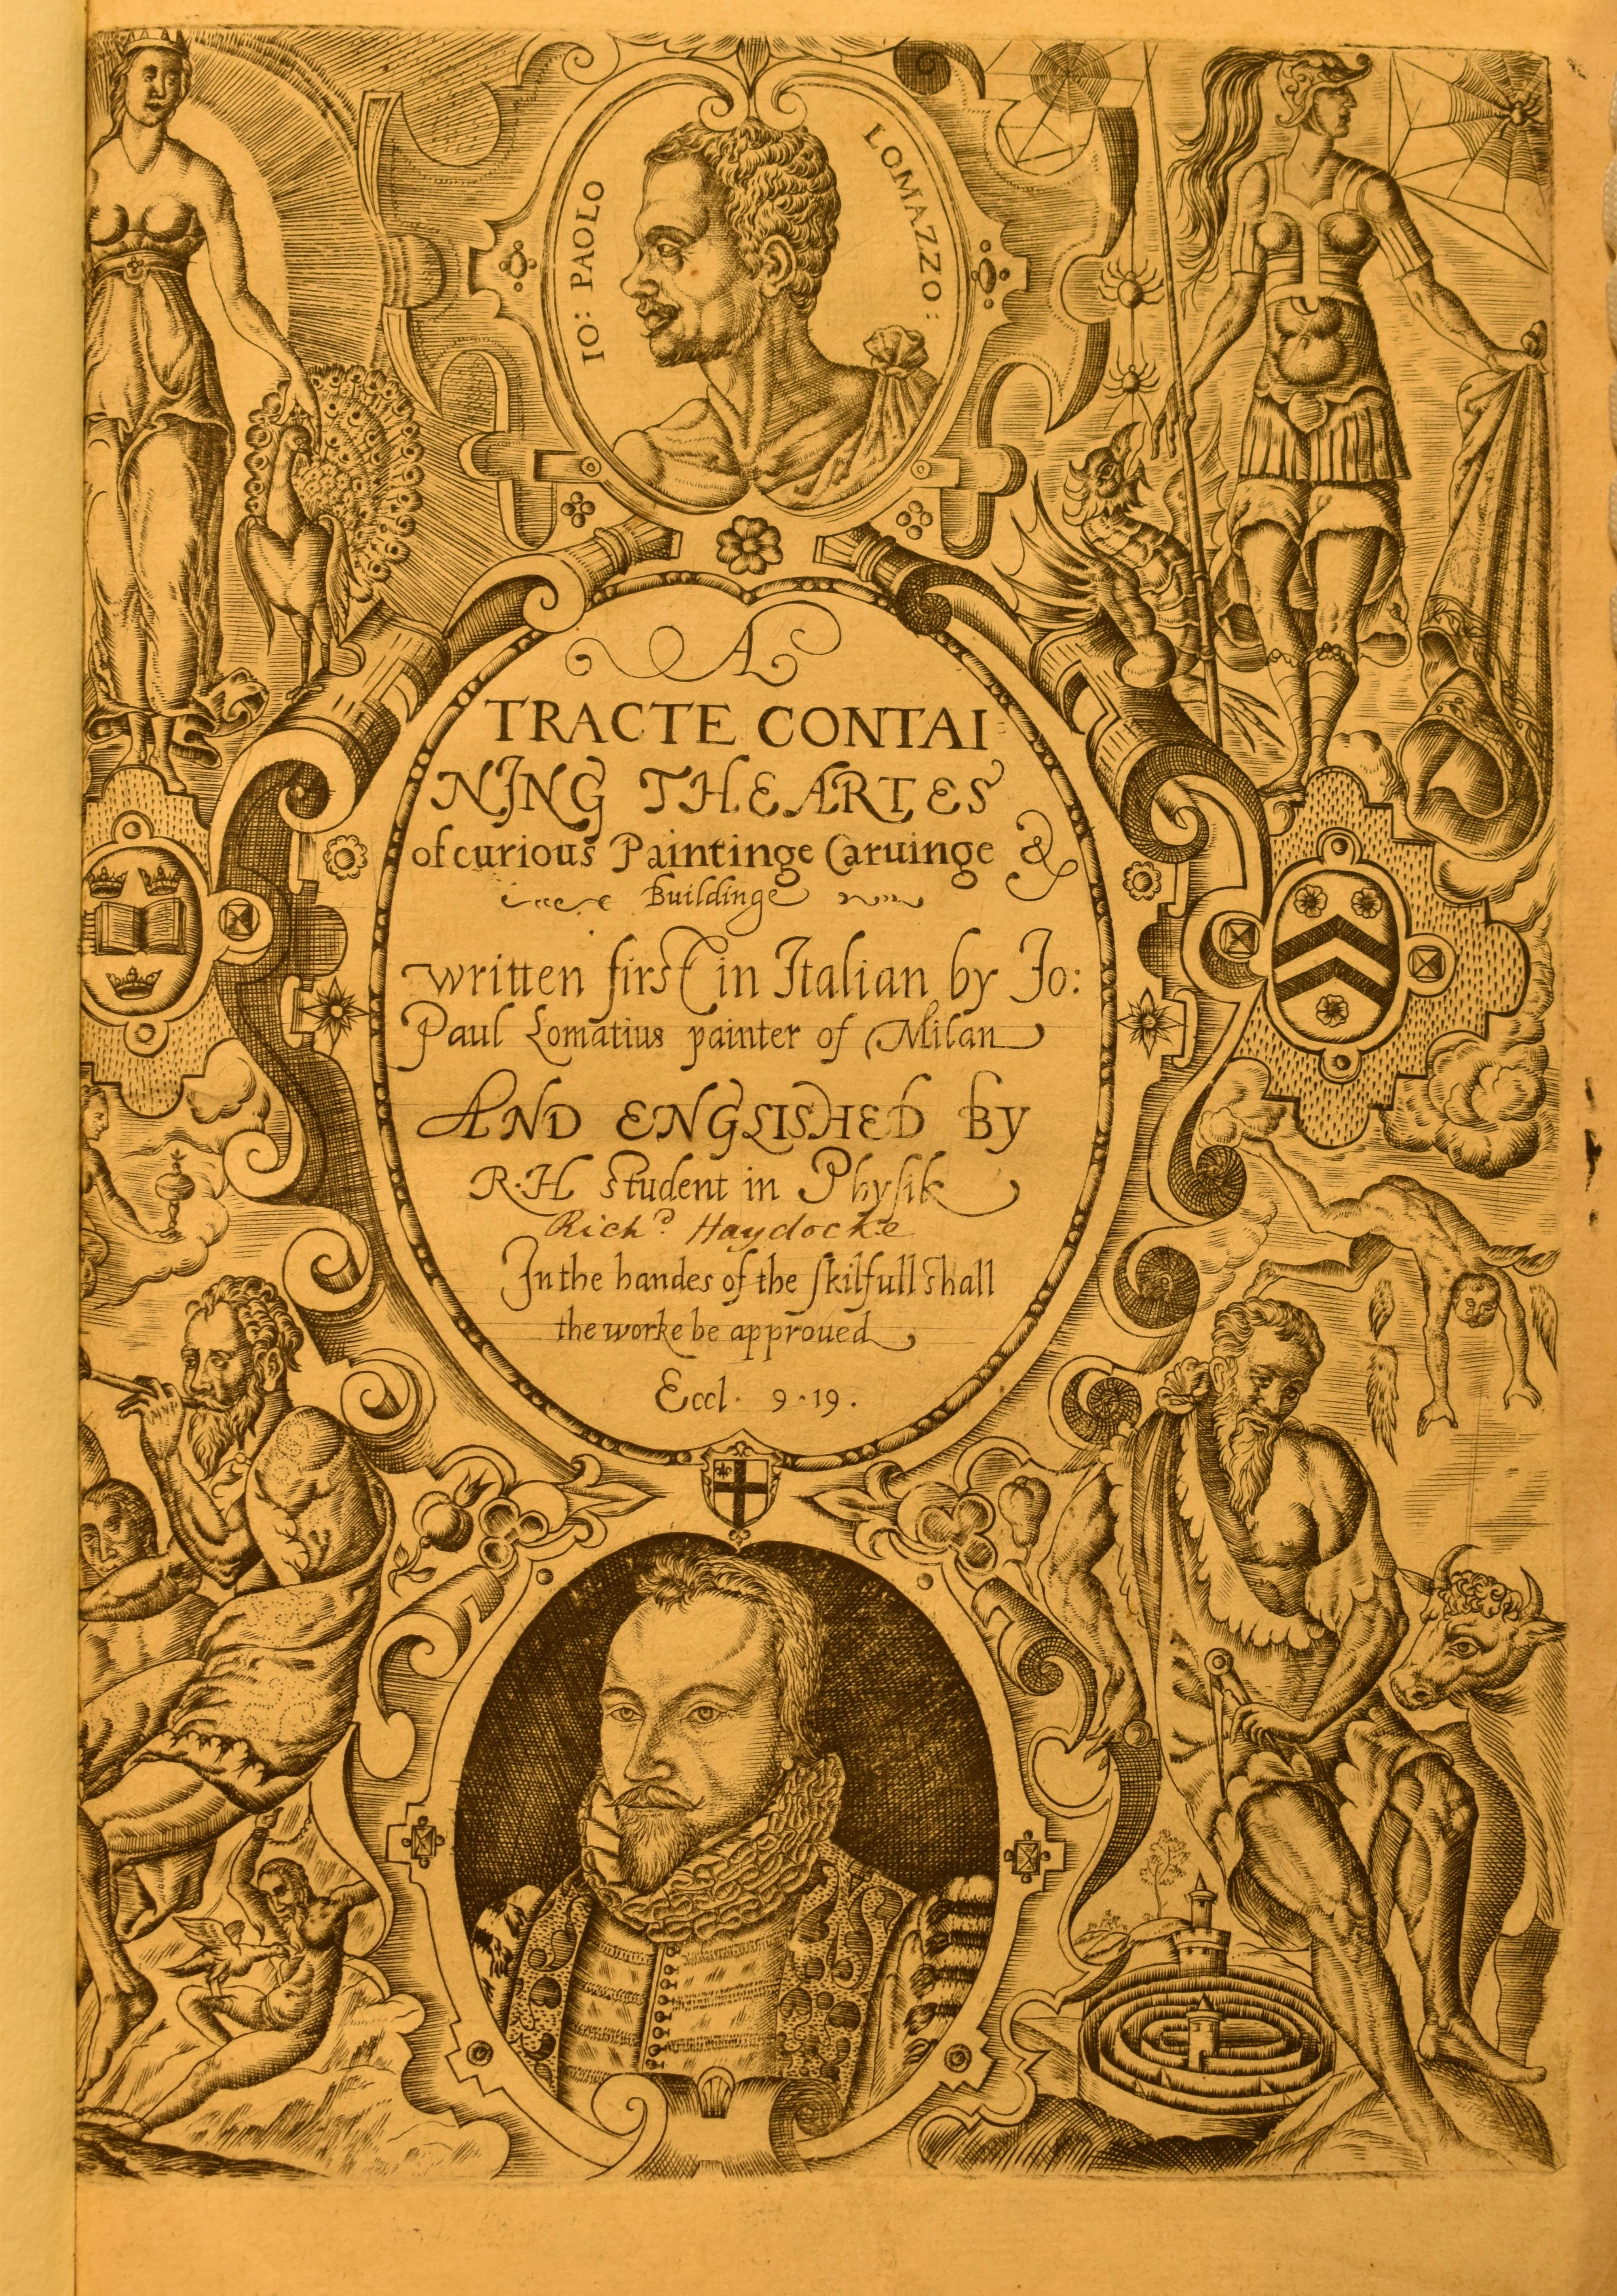 IO: PAOLO
LOMAZZO:
A
TRACTE CONTAI
NING THE ARTES
of curious Paintinge Caruinge &
Buildinge
written first in Italian by Jo:
Paul Lomatius painter of Milan
AND ENGLISHED BY
R.H Student in Physik
Richd. Haydocke
In the handes of the skilfull shall
the worke be approued
Eccl. 9.19.